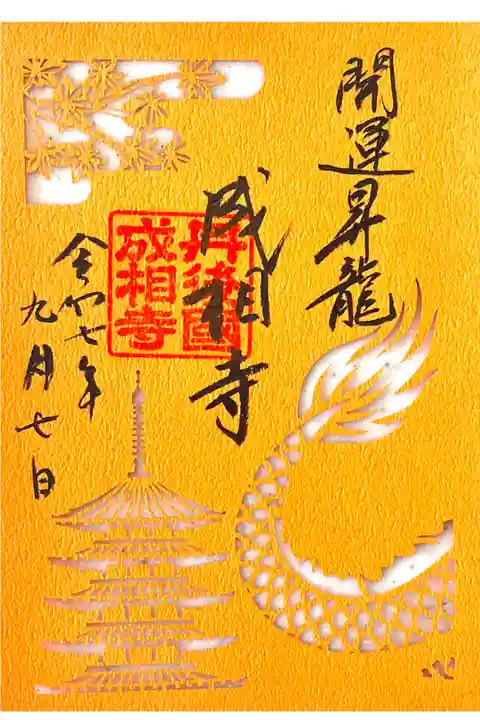 開運昇龍
成相寺
丹後國
成相寺
令和七年
九月七日